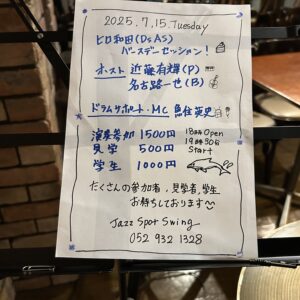 2025.7.15.Tuesday
ヒロ和田(Ds AS)
バースデーセッション!
ホスト 近藤有輝(P)
名古路一也(B)
ドラムサポート・MC 魚住英史
演奏参加 1500円
見学 500円
学生 1000円
18時Open
19時30分
Start
たくさんの参加者、見学者、学生
お待ちしております
Jazz Spot Swing
052 932 1328